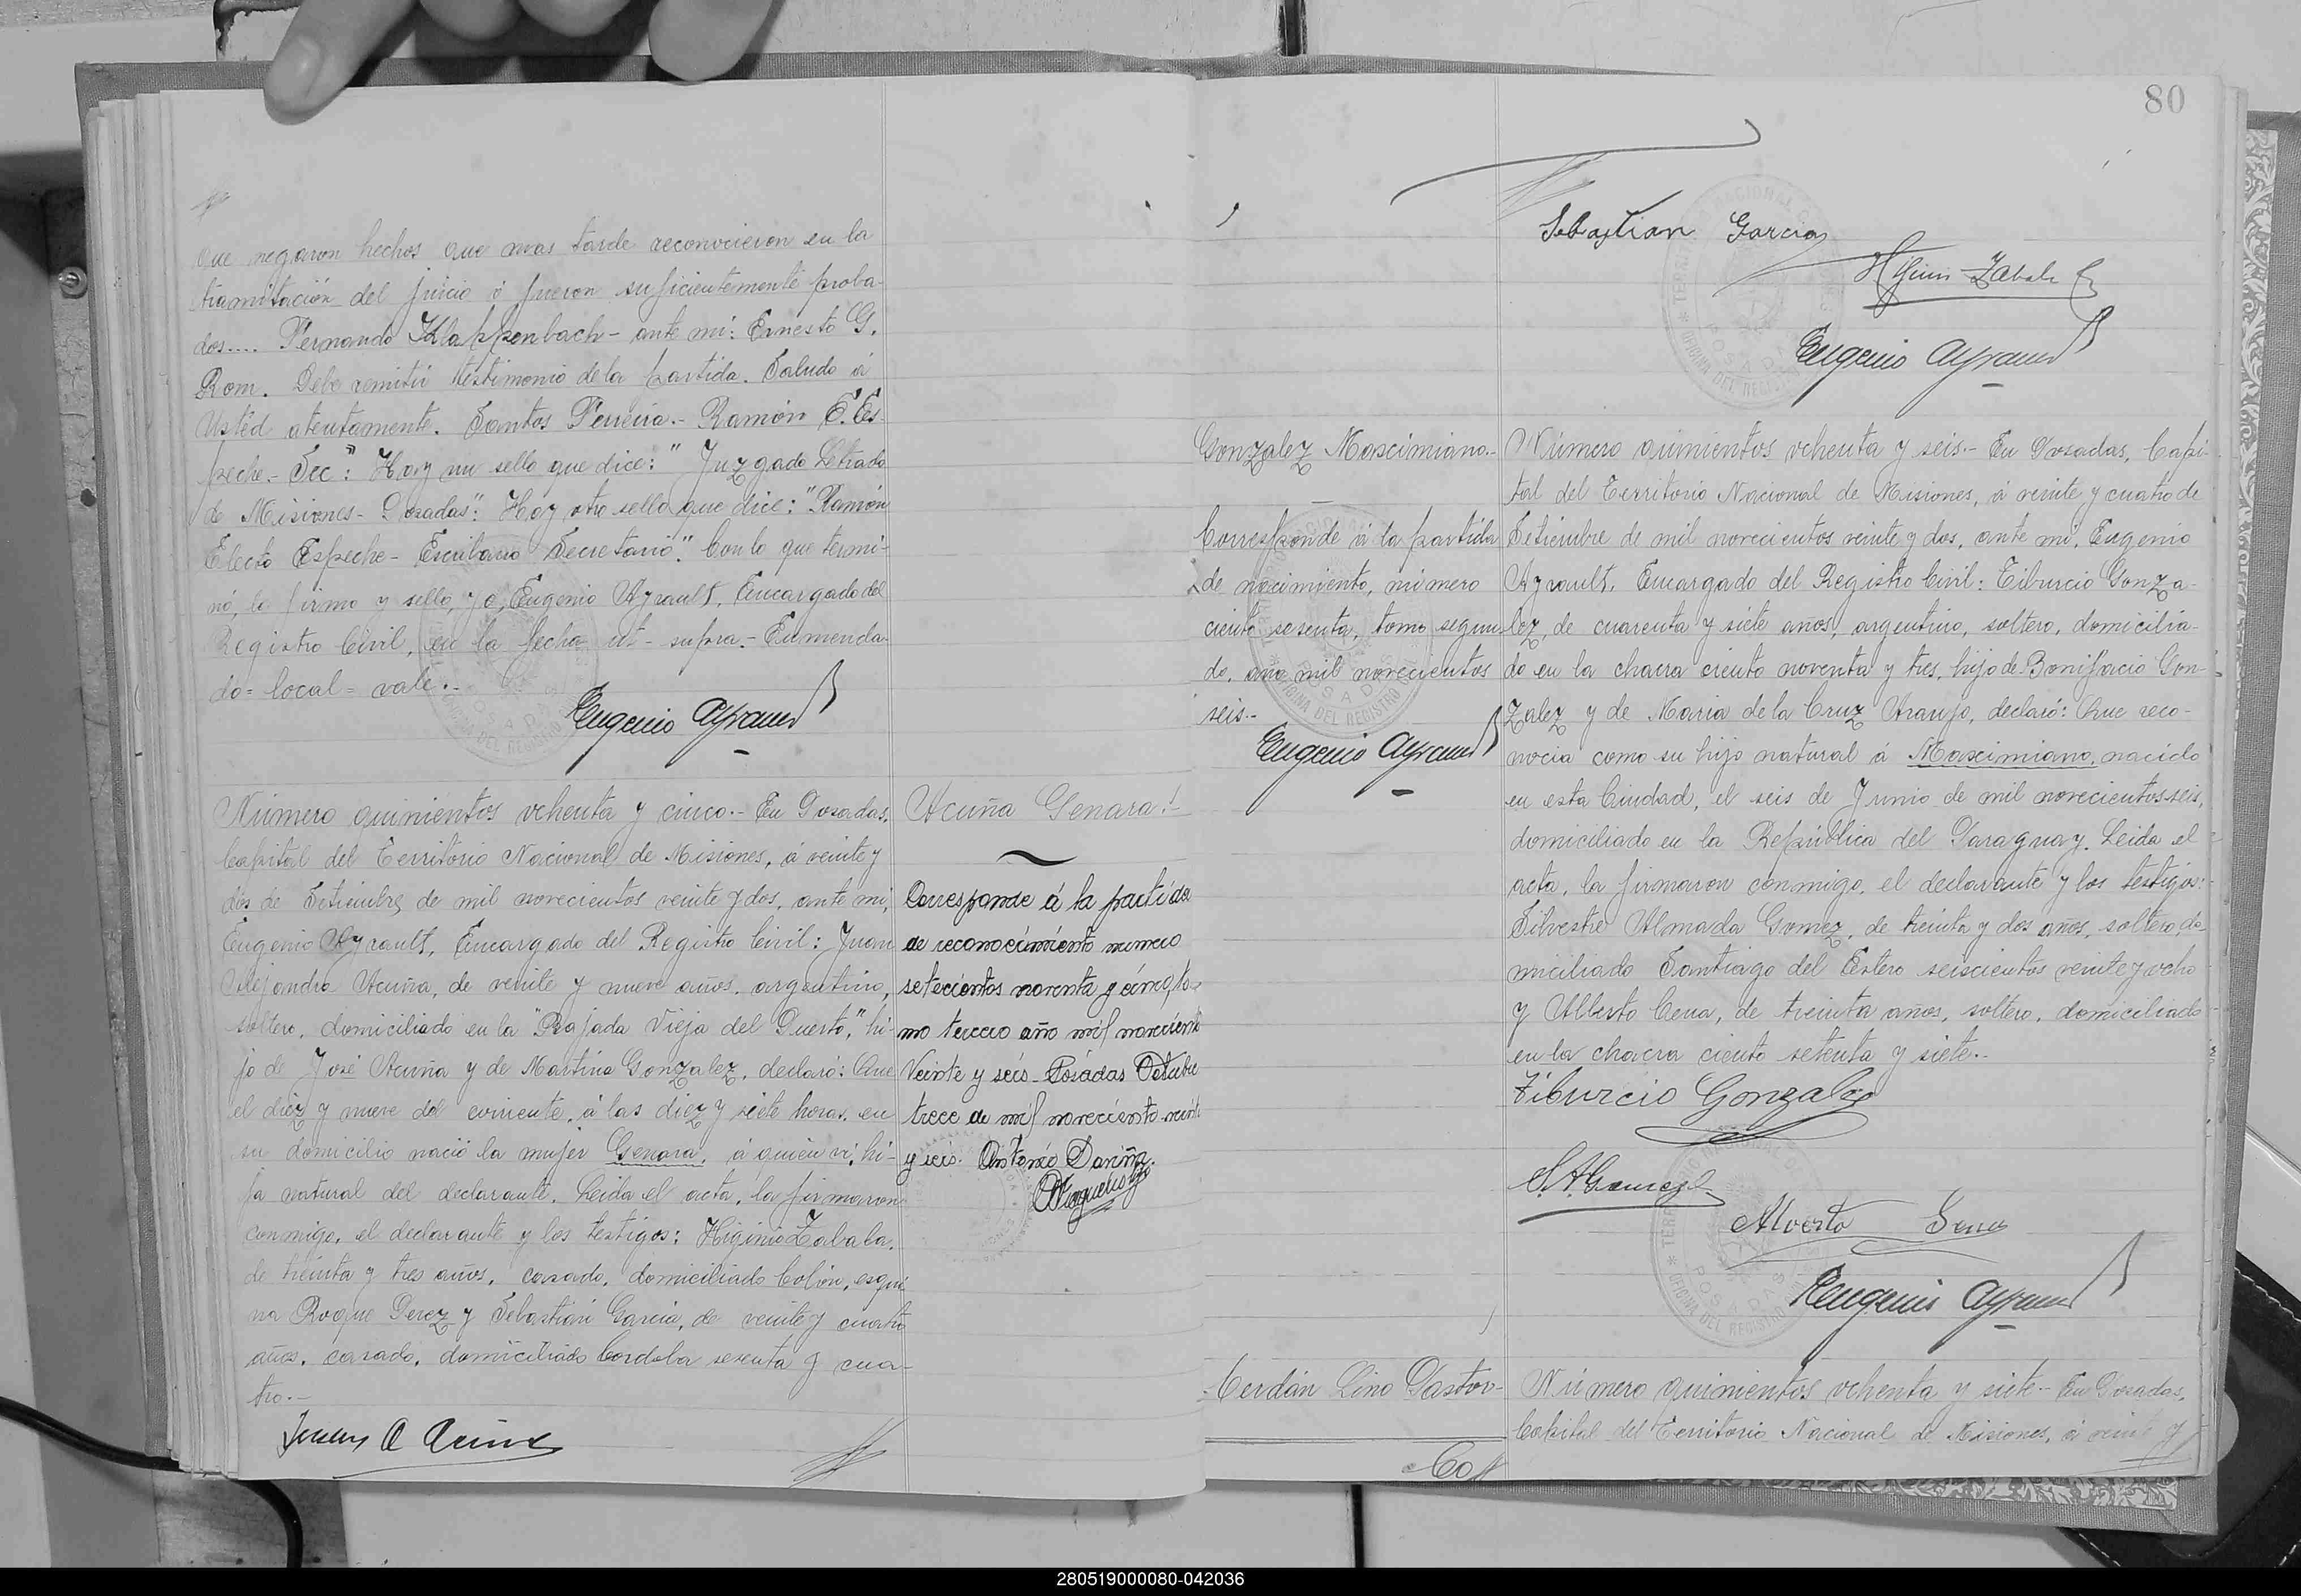 que negaron hechos que mas tarde reconocieron en la
tramitación del juicio ó fueron suficientemente proba-
dos.... Fernando Klappenbach - ante mi: Ernesto G.
Rom. Debe remitir testimonio de la partida. Saludo á
Usted atentamente. Santos Ferreira.- Ramón E. Es-
peche - Sec": Hay un sello que dice: "Juzgado Letrado
de Misiones - Posadas": Hay otro sello que dice: "Ramón
Electo Espeche - Escribano Secretario". Con lo que termi-
nó, lo firmo y sello, yo, Eugenio Ayrault, Encargado del
Registro Civil, en la fecha ut-supra.- Enmenda-
do = local = vale.-
Eugenio Ayrault
Número quinientos ochenta y cinco.- En Posadas,
Capital del Territorio Nacional de Misiones, á veinte y
dos de Setiembre de mil novecientos veinte y dos, ante mi,
Eugenio Ayrault, Encargado del Registro Civil: Juan
Alejandro Acuña, de veinte y nueve años, argentino,
soltero, domiciliado en la "Bajada Vieja del Puerto," hi-
jo de José Acuña y de Martina Gonzalez, declaró: Que
el diez y nueve del corriente, á las diez y siete horas, en
su domicilio nació la mujer Genara, á quien vi, hi-
ja natural del declarante. Leida el acta, la firmaron
conmigo, el declarante y los testigos: Higinio Zabala,
de treinta y tres años, casado, domiciliado Colón, esqui-
na Roque Perez y Sebastián Garcia, de veinte y cuatro
años, casado, domiciliado Cordoba sesenta y cua-
tro.-
Juan A Acuña
Acuña Genara.-
Corresponde á la partida
de reconocimiento numero
setecientos noventa y cinco, to-
mo tercero año mil novecientos
Veinte y seis - Posadas Octubre
trece de mil novecientos veinte
y seis. Antonio
80
Sebastian Garcia
Higinio Zabala
Eugenio Ayrault
Gonzalez Mascimiano.-
Corresponde á la partida
de nacimiento, número
ciento sesenta, tomo segun-
do, año mil novecientos
seis.-
Eugenio Ayrault
Número quinientos ochenta y seis.- En Posadas, Capi-
tal del Territorio Nacional de Misiones, á veinte y cuatro de
Setiembre de mil novecientos veinte y dos, ante mi, Eugenio
Ayrault, Encargado del Registro Civil: Tiburcio Gonza-
lez, de cuarenta y siete años, argentino, soltero, domicilia-
do en la chacra ciento noventa y tres, hijo de Bonifacio Gon-
zalez y de Maria de la Cruz Araujo, declaró: Que reco-
nocia como su hijo natural á Mascimiano, nacido
en esta Ciudad, el seis de Junio de mil novecientos seis,
domiciliado en la República del Paraguay. Leida el
acta, la firmaron conmigo, el declarante y los testigos:
Silvestre Almada Gomez, de treinta y dos años, soltero, do-
miciliado Santiago del Estero seiscientos veinte y ocho
y Alberto Cena, de treinta años, soltero, domiciliado
en la chacra ciento setenta y siete.-
Tiburcio Gonzalez
S. A. Gomez
Alverto Sena
Eugenio Ayrault
Cerdán Lino Pastor-
Número quinientos ochenta y siete.- En Posadas,
Capital del Territorio Nacional de Misiones, á veinte y
280519000080-042036